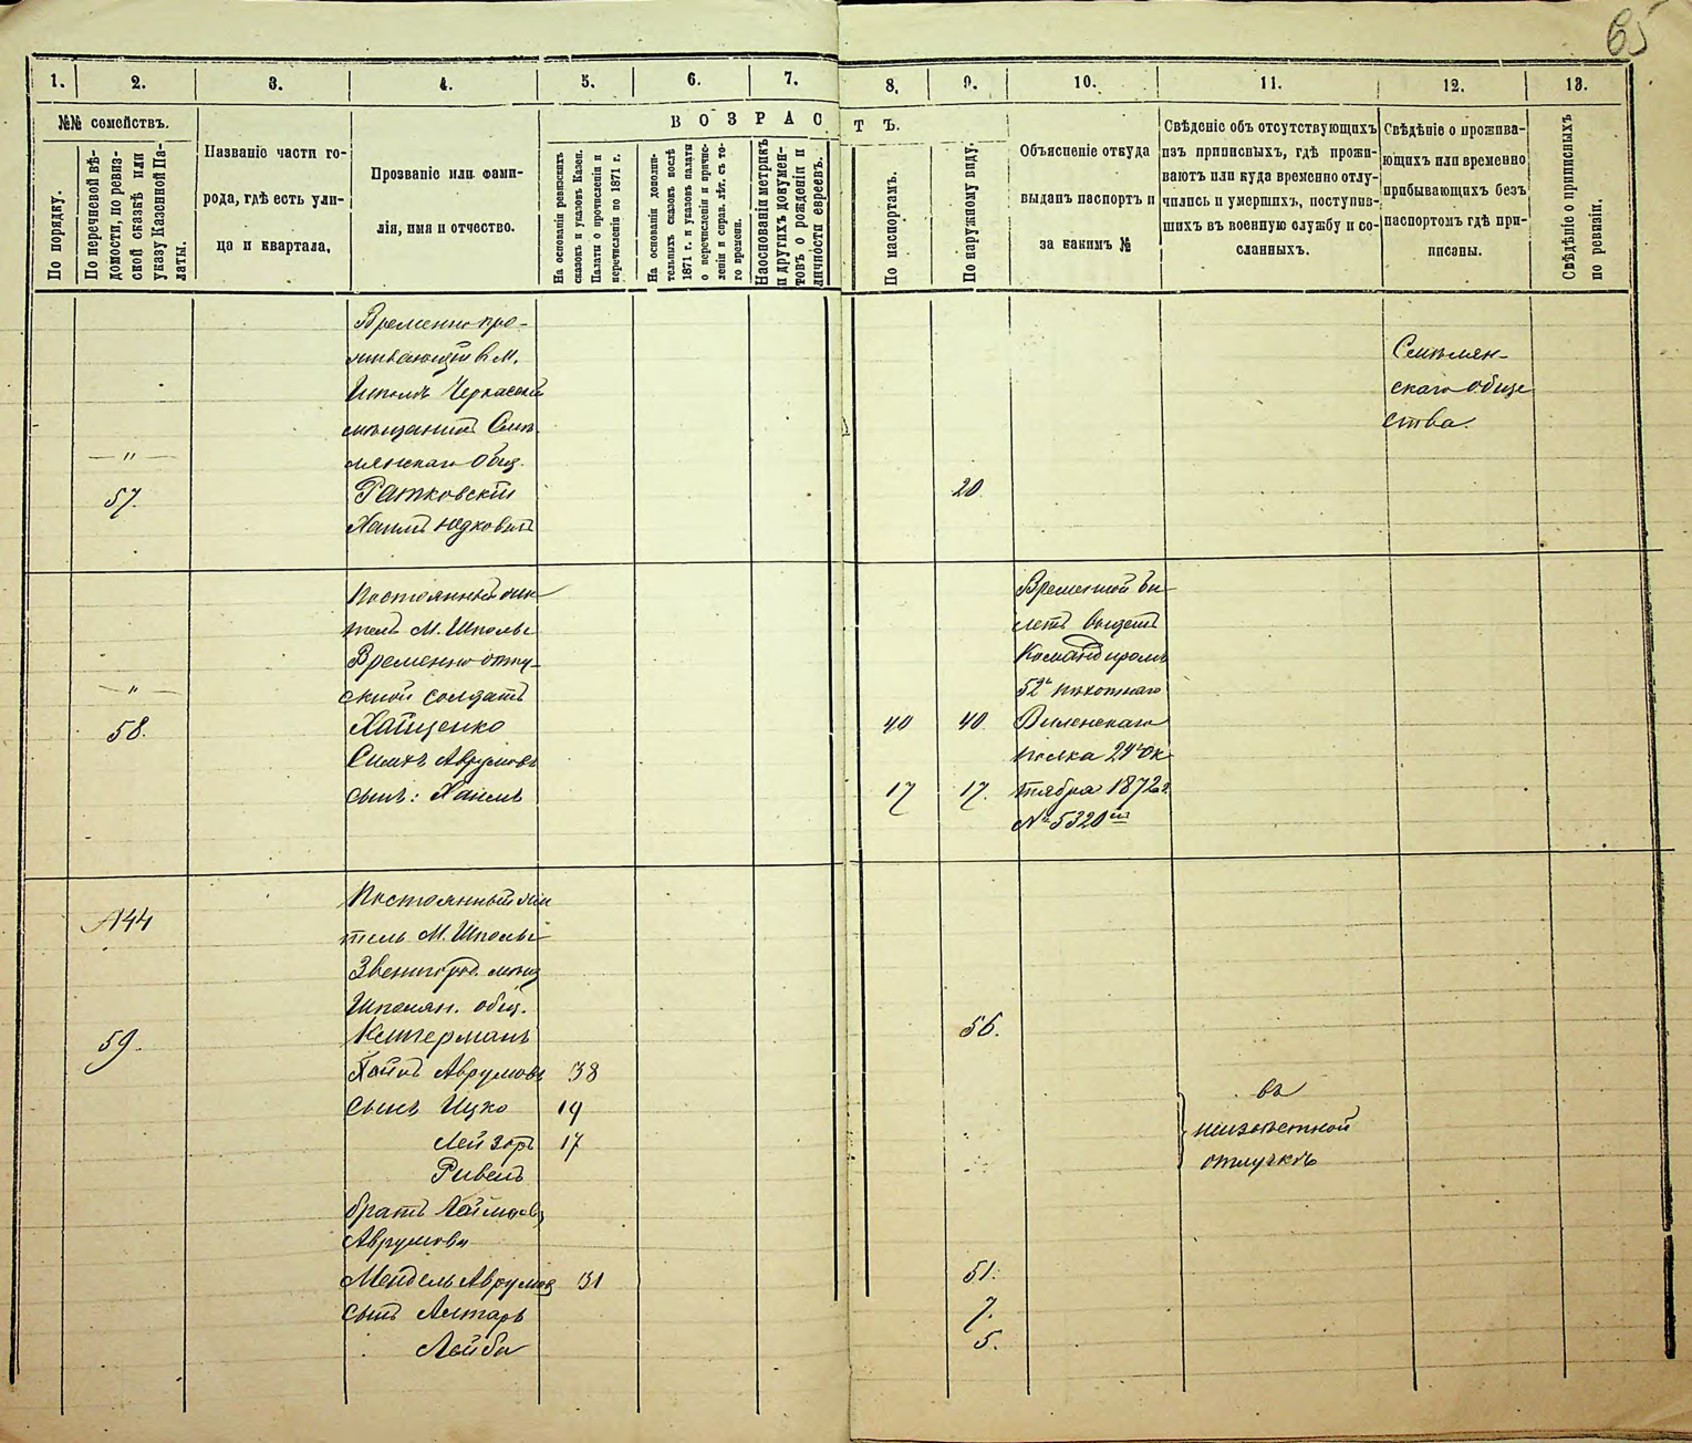 65
1. 2. 3. 4. 5. 6. 7. 8. 9. 10. 11. 12. 13.
№№ семействъ.
По порядку.
По перечневой вѣ-
домости, по ревиз-
ской сказкѣ или
указу Казенной Па-
латы.
Названіе части го-
рода, гдѣ есть ули-
ца и квартала,
Прозваніе или фами-
лія, имя и отчество.
ВОЗРАСТЪ.
На основаніи ревизскихъ
сказокъ и указовъ Казен.
Палаты о причисленіи и
перечисленіи по 1871 г.
На основаніи дополни-
тельныхъ сказокъ послѣ
1871 г. и указовъ палаты
о перечисленіи и причис-
леніи и справ. лѣт. съ то-
го времени.
На основаніи метрикъ
и другихъ докумен-
товъ о рожденіи и
личности евреевъ.
По паспортамъ.
По наружному виду.
Объясненіе откуда
выданъ паспортъ и
за какимъ №
Свѣденіе объ отсутствующихъ
изъ приписныхъ, гдѣ прожи-
ваютъ или куда временно отлу-
чились и умершихъ, поступив-
шихъ въ военную службу и со-
сланныхъ.
Свѣдѣніе о прожива-
ющихъ или временно
прибывающихъ безъ
паспортомъ гдѣ при-
писаны.
Свѣдѣніе о приписныхъ
по ревизіи.
Временно про-
живающій в М.
Шполѣ Черкаскій
мѣщанинъ Смѣ-
лянскаго Общ.
Смѣлян-
скаго обще
ства.
— " —
57.
Ратковскій
20.
Хаимъ Юдковичъ
Постоянный жи
тель М. Шполы
Временно отпу-
скной солдатъ
— " —
58.
Хайщенко
40 40.
Симхъ Аврумовъ
сынъ: Хаимъ
17 17.
Временной би
летъ выданъ
Командиромъ
52го пѣхотнаго
Виленскаго
полка 24го Ок
тября 1872 г.
№ 5320й
144
Постоянный жи
тель М. Шполы
Звенигород. мѣщ
Шполян. общ.
59.
Кельтерманъ
56.
Хаймъ Аврумовъ 38
сынъ Ицко 19
Лейзоръ 17
Рувелъ
въ
неизвѣстной
отлучкѣ
братъ Хаймовъ
Аврумовъ
Мендель Аврумов 31
51.
сынъ Алтаръ
7.
Лейба
5.